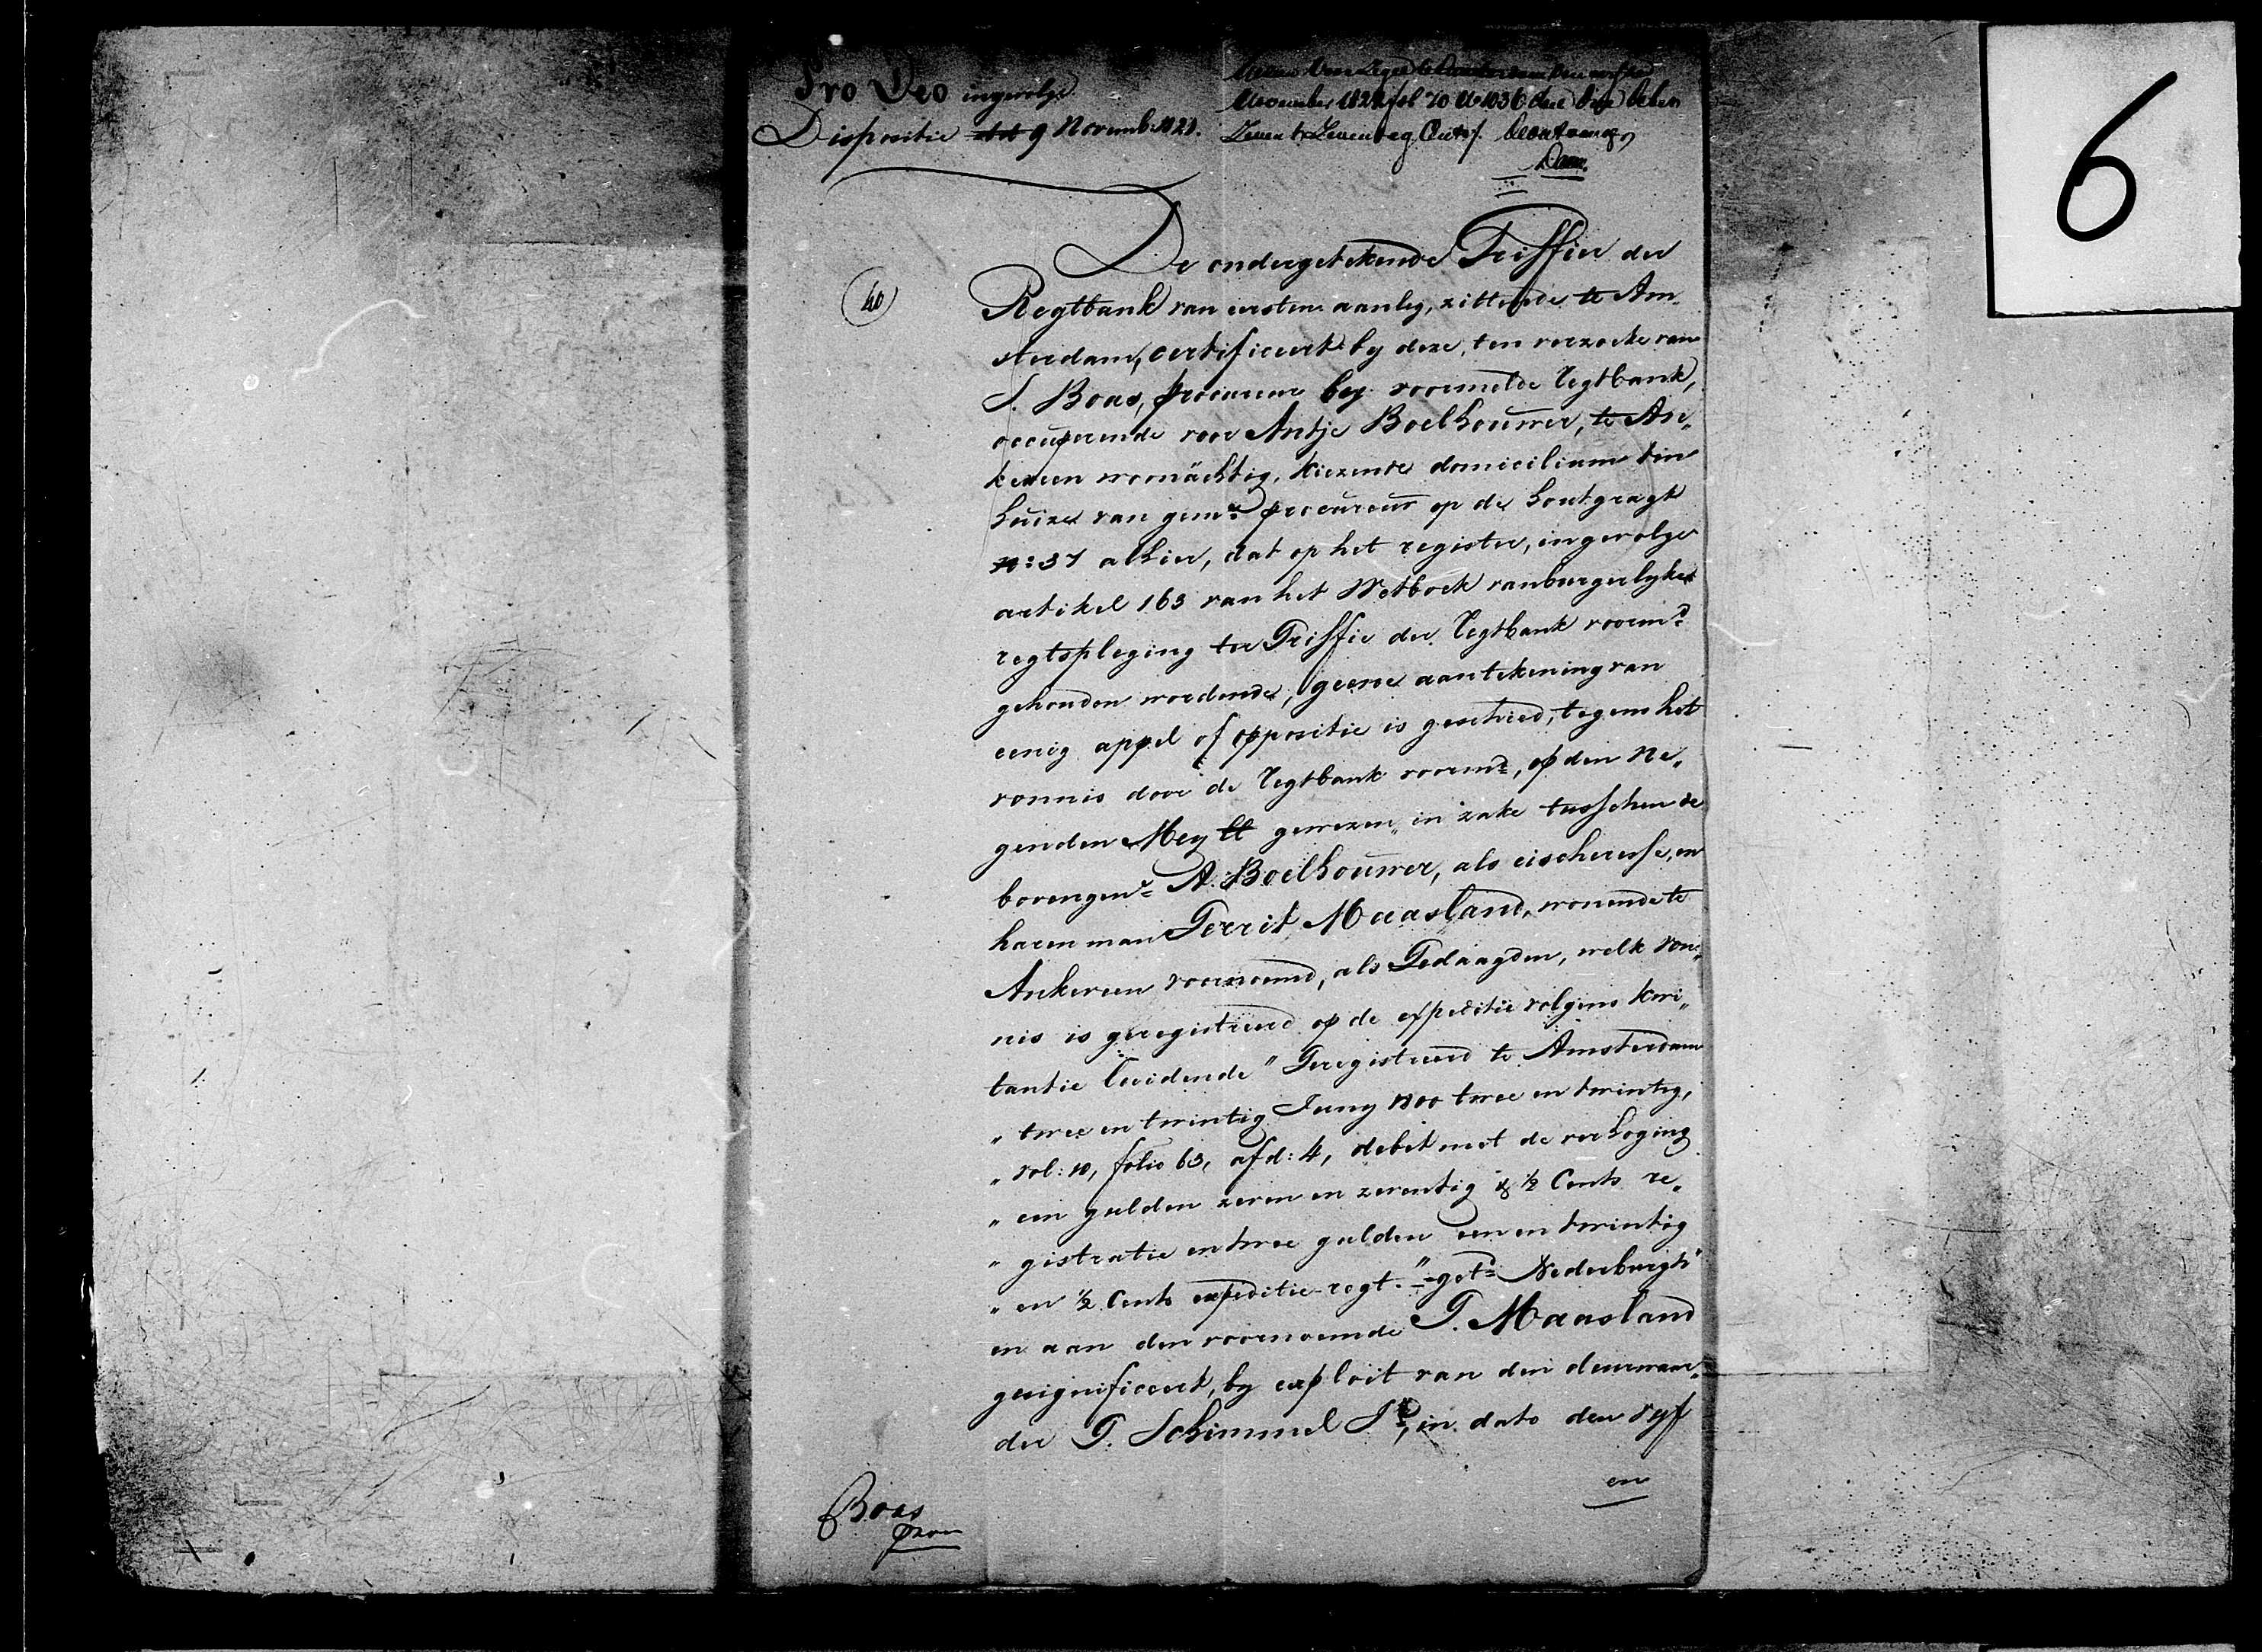 Pro Deo ingevolge
Dispositie dd 9 Novemb: 1821.
November 1822 fol 70
Zeven & Zeventig Cents
6
De ondergetekende Griffier der
40
Regtbank van eersten aanleg, zittende te Am-
sterdam, certificeert by deze, ten verzoeke van
S. Boas, procureur bey voormelde Regtbank,
occuperende voor Antje Boelhouwer, te An„
keveen woonächtig, kiezende domicilium ten
huize van gemde procureur op de houtgragt
no: 37 alhier, dat op het register, ingevolge
artikel 163 van het Wetboek van burgerlyke
regtspleging ter Griffie der Regtbank voormd
gehouden wordende, geene aantekening van
eenig appel of oppositie is geschied, tegens het
vonnis door de Regtbank voormd, op den Ne„
genden Mey ll gewezen, in zake tusschen de
bovengemde A. Boelhouwer, als eischeresse, en
haren man Gerrit Maasland, wonende te
Ankeveen voornoemd, als Gedaagden, welk von„
nis is geregistreerd op de expeditie volgens kwi„
tantie luidende "Geregistreerd te Amsterdam
„ twee en twintig Juny 1800 twee en twintig,
„ vol: 10, folio 63, afd: 4, debet met de verhoging
„ een gulden zeven en zeventig & ½ Cents re„
„ gistratie en twee gulden een en twintig
„ en ½ Cents expeditie-regt." getd Nederburgh"
en aan den voornoemde G. Maasland
gesignificeerd, by exploit van den deurwaar„
der G. Schimmel Jr, in dato den vyf
en
Boas